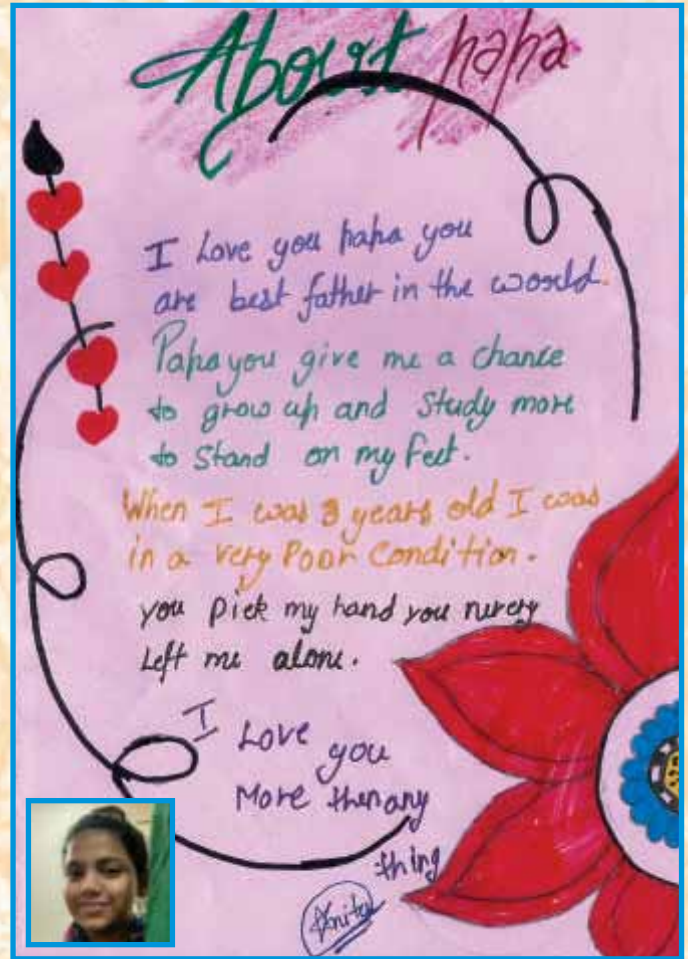 About papa
I Love you papa you
are best father in the world.
Papa you give me a chance
to grow up and Study more
to Stand on my feet.
When I was 3 years old I was
in a very Poor Condition.
you Pick my hand you
Left me alone.
I Love you
More then any
thing
Anita